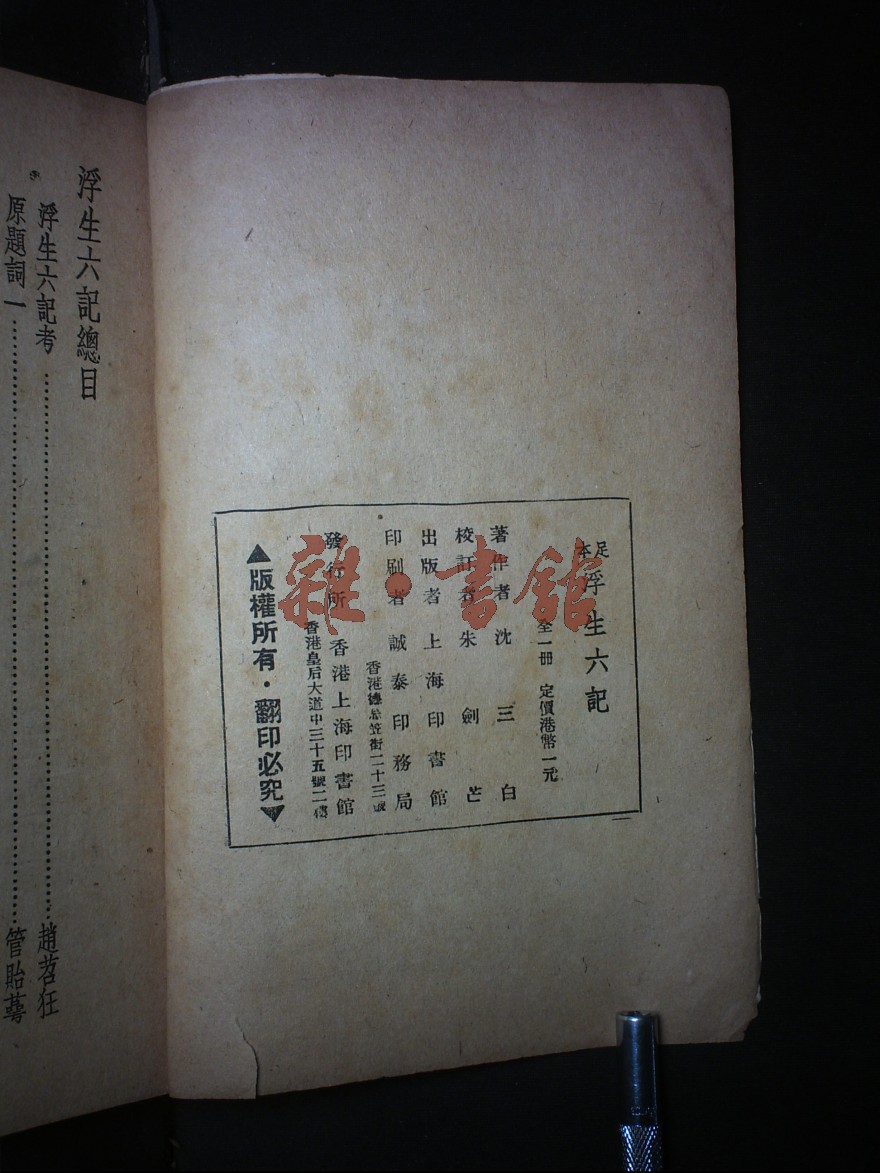 足本浮生六記
全一冊 定價港幣一元
著作者 沈三白
校訂者 朱劍芒
出版者 上海印書館
印刷者 誠泰印務局
發行所 香港上海印書館
香港皇后大道中三十五號二樓
▲版權所有・翻印必究▼
雜・書館
浮生六記總目
浮生六記考 趙苕狂
原題詞一 管貽萼